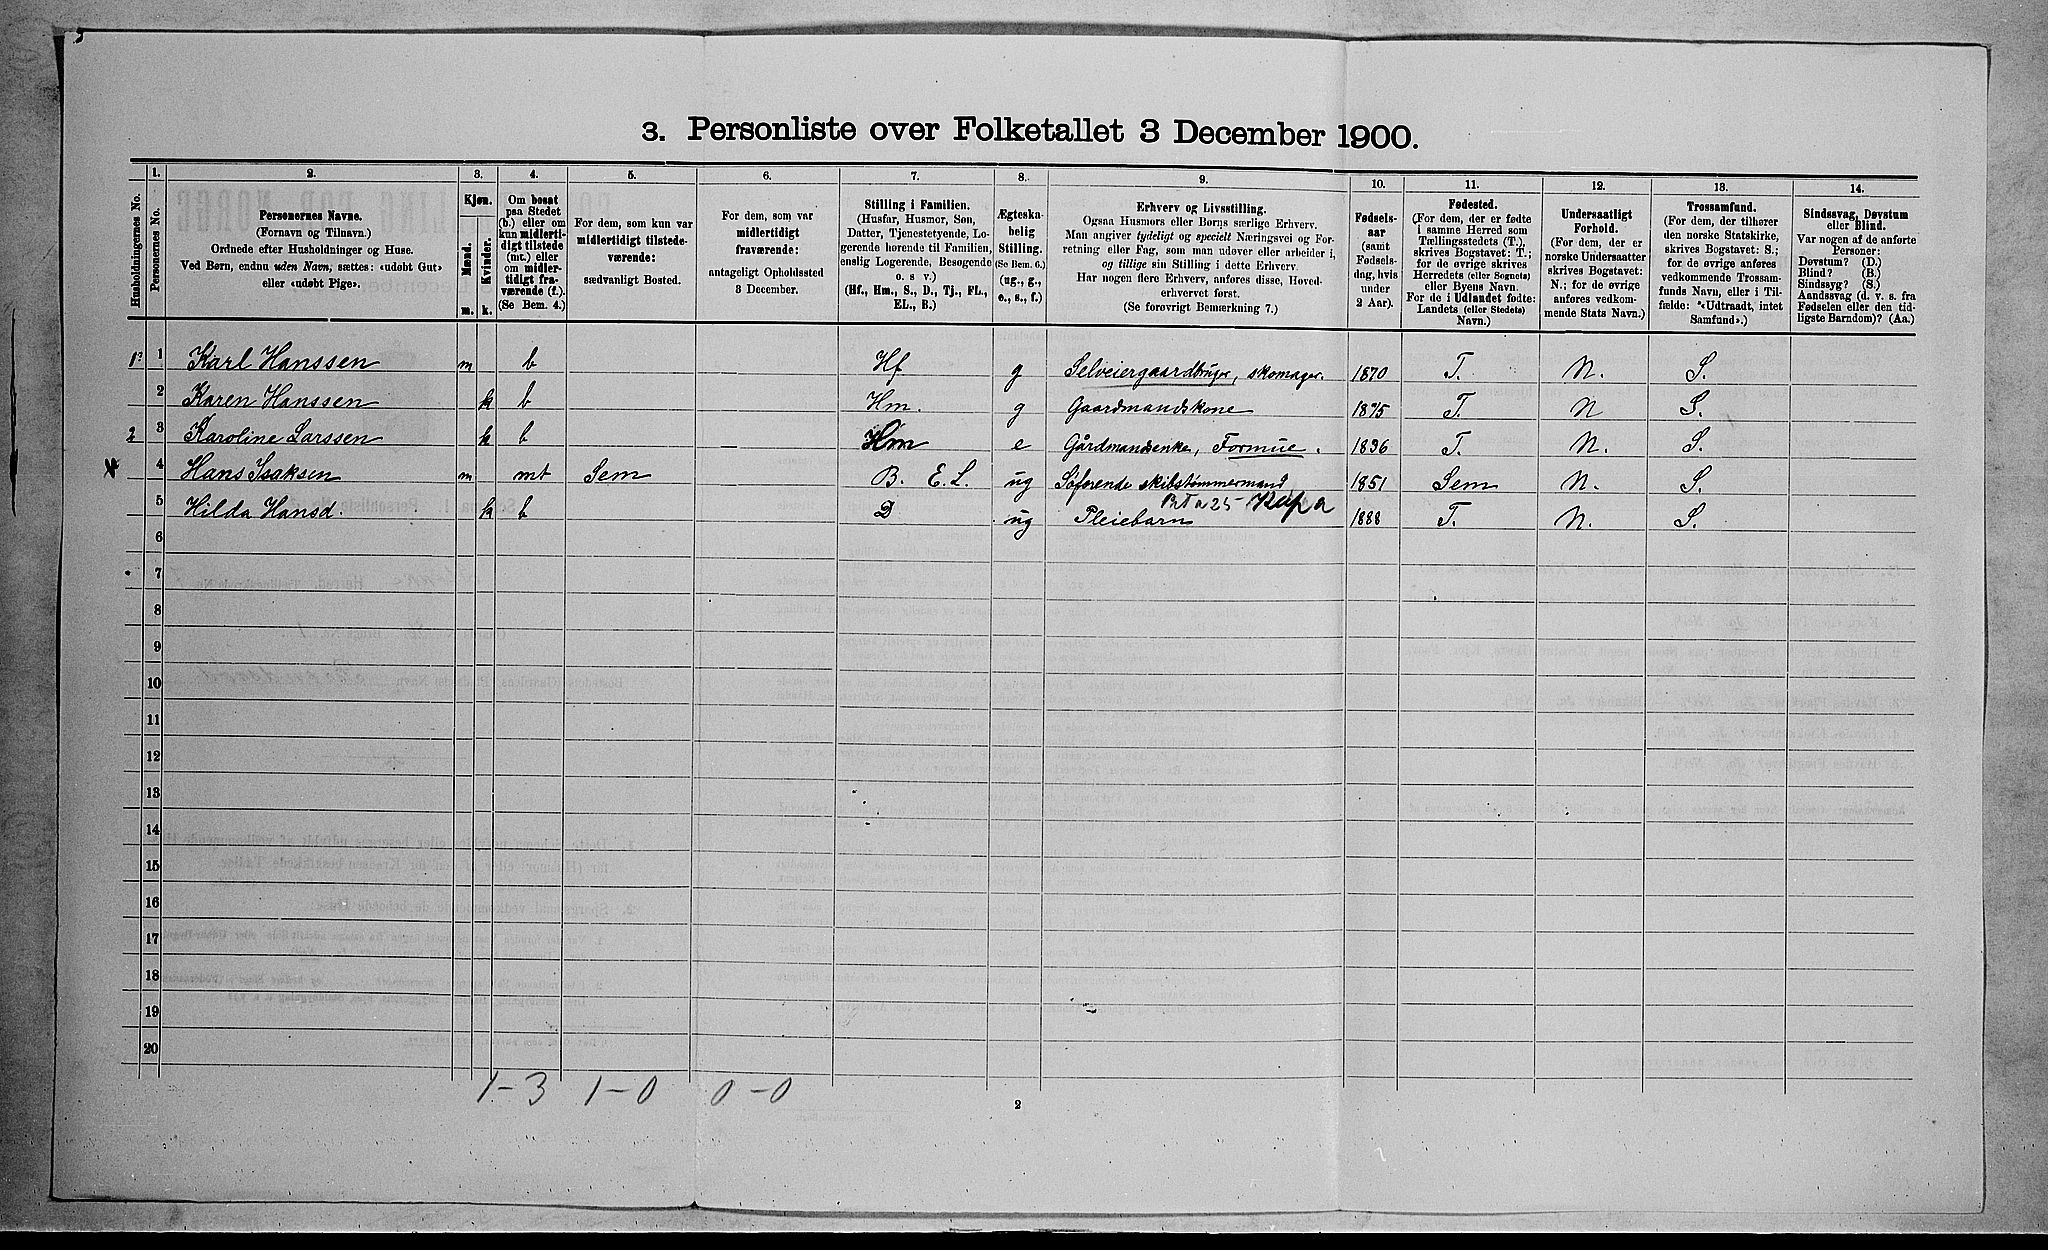 3. Personliste over Folketallet 3 December 1900.
Husholdningernes No.
1.
Personernes No.
2.
Personernes Navne.
(Fornavn og Tilnavn.)
Ordnede efter Husholdninger og Huse.
Ved Børn, endnu uden Navn, sættes: «udøbt Gut»
eller «udøbt Pige».
3.
Kjøn.
Mænd.
Kvinder.
m. k.
4.
Om bosat
paa Stedet
(b.) eller om
kun midlerti-
digt tilstede
(mt.) eller
om midler-
tidigt fra-
værende (f.).
(Se Bem. 4.)
5.
For dem, som kun var
midlertidigt tilstede-
værende:
sædvanligt Bosted.
6.
For dem, som var
midlertidigt
fraværende:
antageligt Opholdssted
3 December.
7.
Stilling i Familien.
(Husfar, Husmor, Søn,
Datter, Tjenestetyende, Lo-
gerende hørende til Familien,
enslig Logerende, Besøgende
o. s v.)
(Hf., Hm., S., D., Tj., FL.,
EL., B.)
8.
Ægteska-
belig
Stilling.
(Se Bem. 6.)
(ug., g.,
e., s., f.)
9.
Erhverv og Livsstilling.
Ogsaa Husmors eller Børns særlige Erhverv.
Man angiver tydeligt og specielt Næringsvei og For-
retning eller Fag, som man udøver eller arbeider i,
og tillige sin Stilling i dette Erhverv.
Har nogen flere Erhverv, anføres disse, Hoved-
erhvervet først.
(Se forøvrigt Bemærkning 7.)
10.
Fødsels-
aar
(samt
Fødsels-
dag, hvis
under
2 Aar).
11.
Fødested.
(For dem, der er fødte
i samme Herred som
Tællingsstedets (T.),
skrives Bogstavet: T.;
for de øvrige skrives
Herredets (eller Sognets)
eller Byens Navn.
For de i Udlandet fødte:
Landets (eller Stedets)
Navn.)
12.
Undersaatligt
Forhold.
(For dem, der er
norske Undersaatter
skrives Bogstavet:
N.; for de øvrige
anføres vedkom-
mende Stats Navn.)
13.
Trossamfund.
(For dem, der tilhører
den norske Statskirke,
skrives Bogstavet: S.;
for de øvrige anføres
vedkommende Trossam-
funds Navn, eller i Til-
fælde: «Udtraadt, intet
Samfund».)
14.
Sindssvag, Døvstum
eller Blind.
Var nogen af de anførte
Personer:
Døvstum? (D.)
Blind? (B.)
Sindssyg? (S.)
Aandssvag (d. v. s. fra
Fødselen eller den tid-
ligste Barndom)? (Aa.)
1 1 Karl Hanssen m b Hf g Selveiergaardbruger, skomager. 1870 T. N. S.
2 Karen Hanssen k b Hm. g Gaardmandskone 1875 T. N S.
2 3 Karoline Larssen k b Hm e Gårdmandsenke, Formue. 1836 T. N. S.
4 Hans Isaksen m mt Sem B. E.L. ug Søfarende skibstømmermand 1851 Sem N. S.
5 Hilda Hansd. k b D ug Pleiebarn 1888 T. N. S.
6
7
8
9
10
11
12
13
14
15
16
17
18
19
20
1-3 1-0 0-0
2